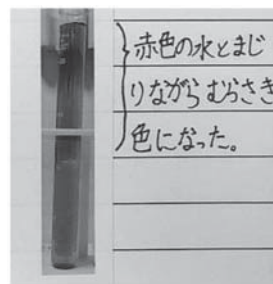 赤色の水とまじ
りながらむらさき
色になった。